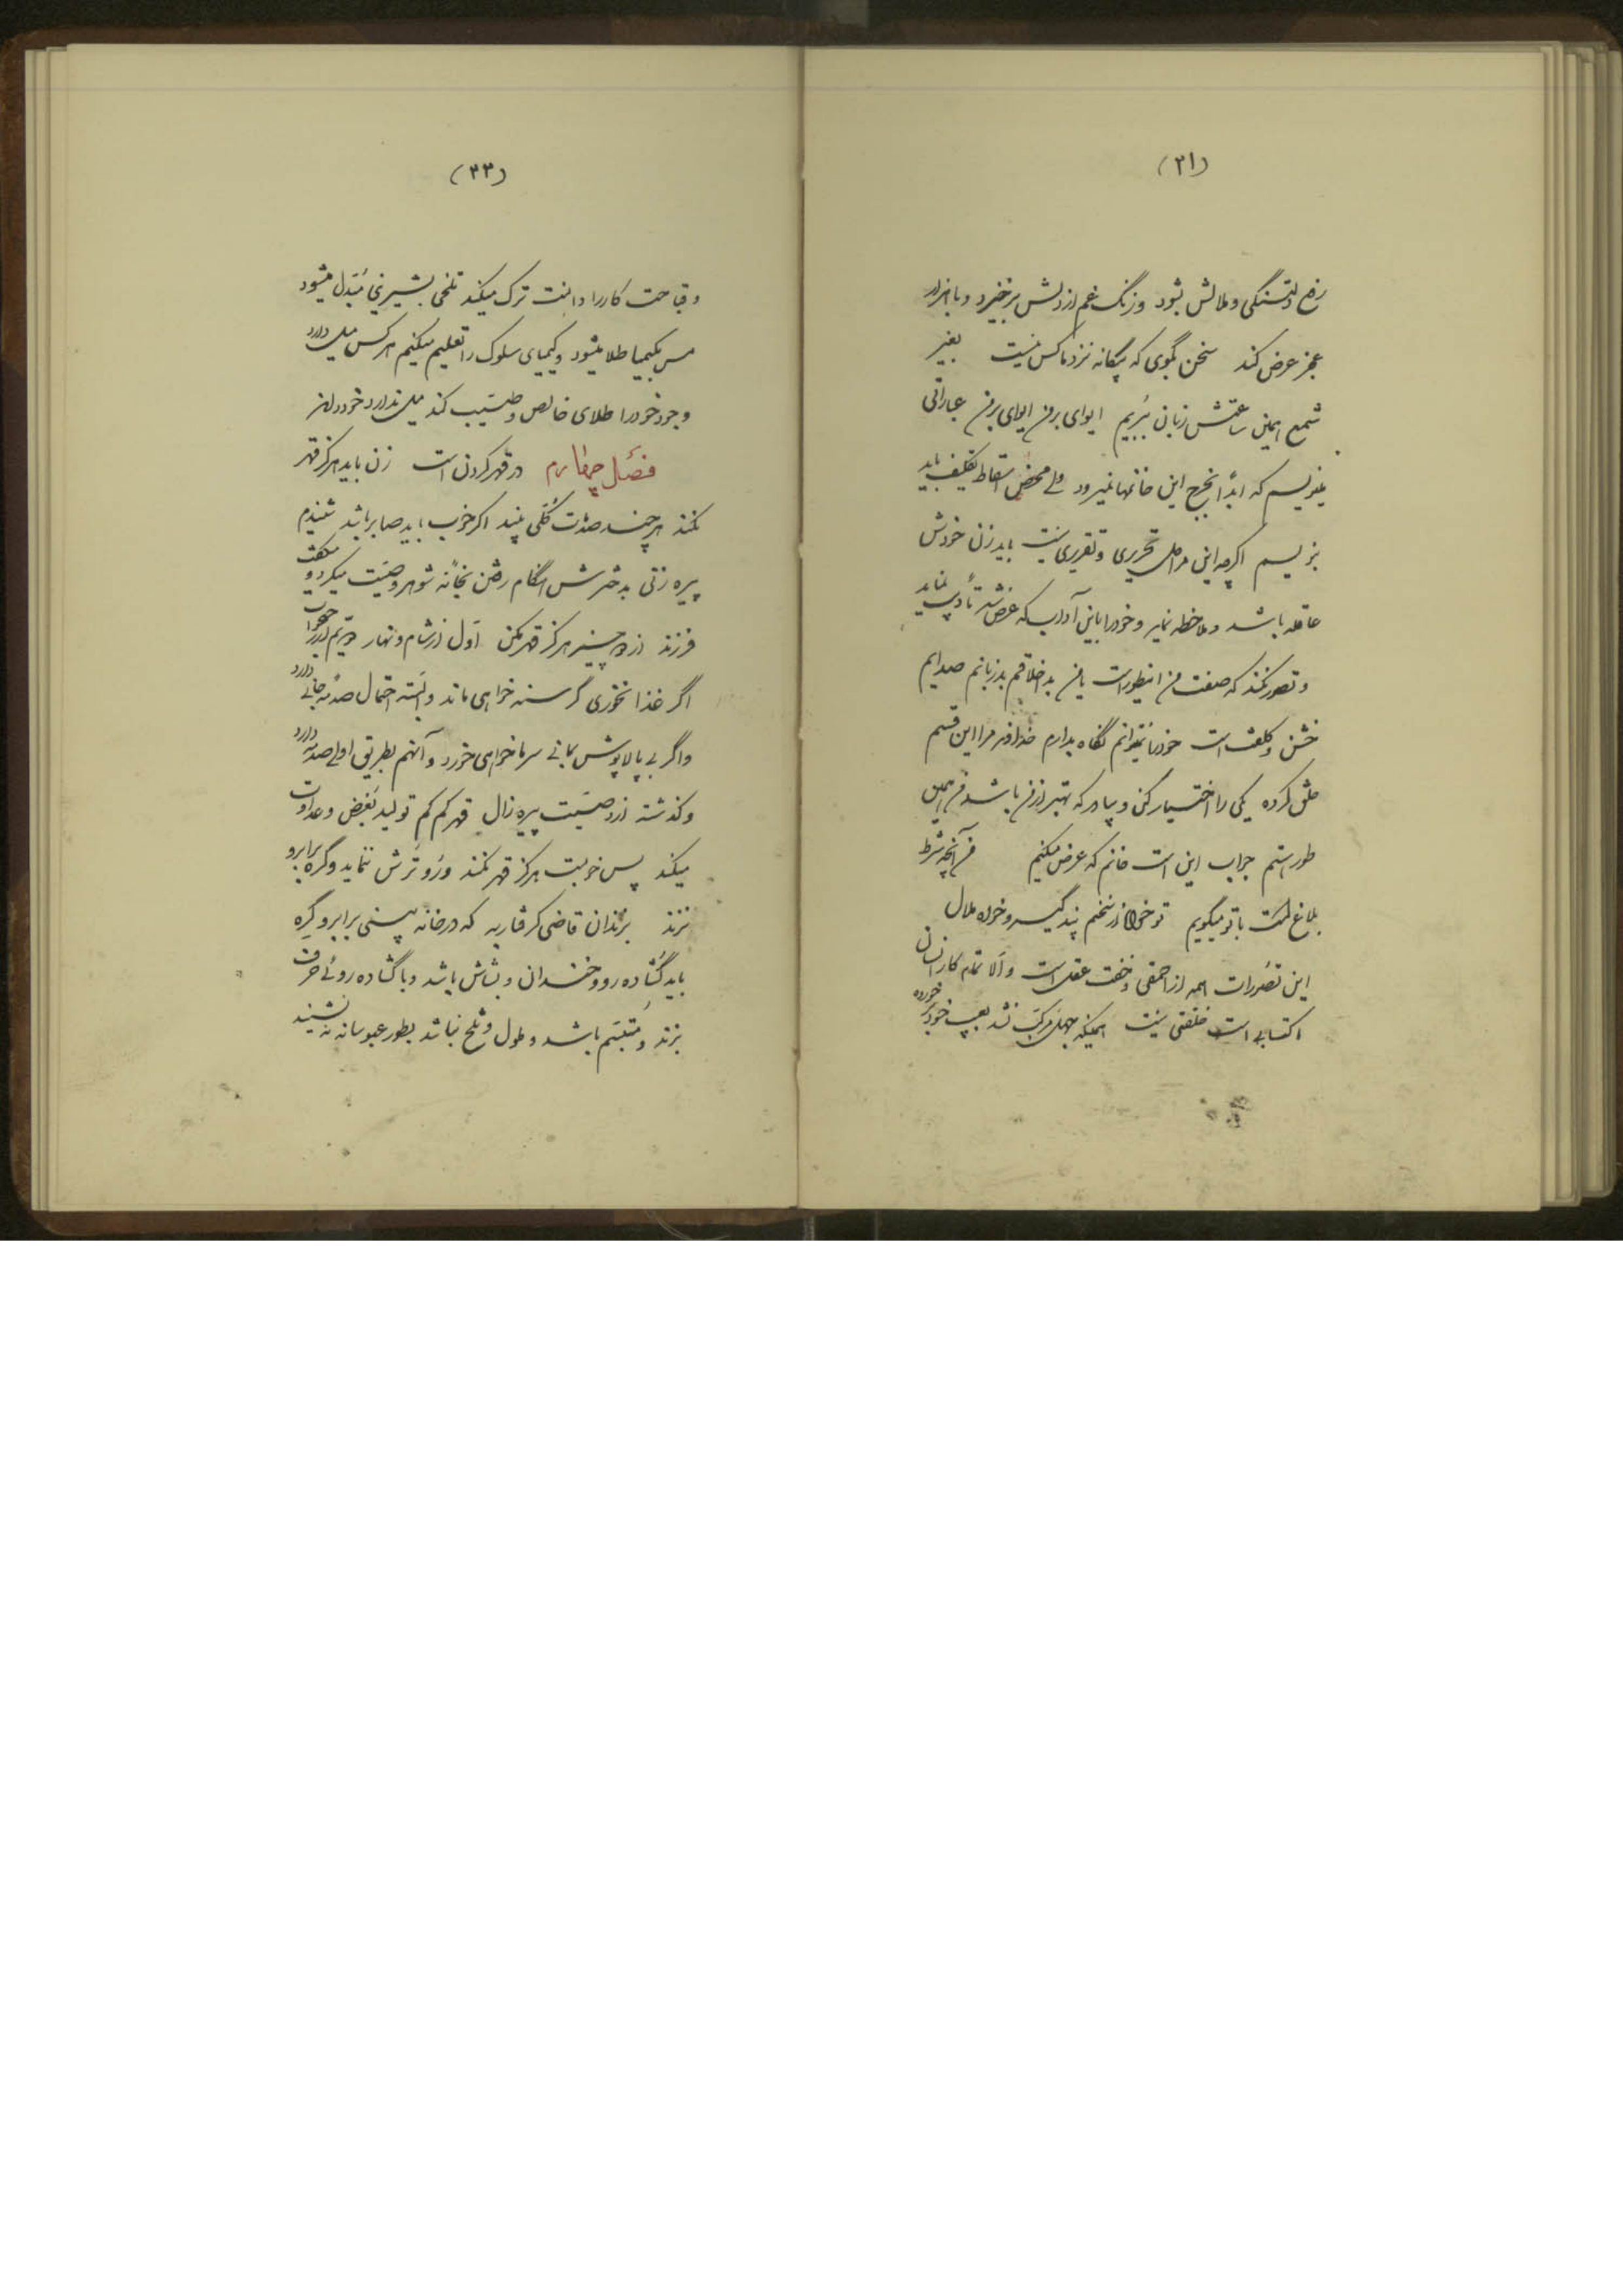 (۳۱)
رفع دلتنگی و ملالش بشود و زنگ غم از دلش برخیزد و با هزار
عجز عرض کند سخن بگوی که بیگانه نزد ما کس نیست بغیر
شمع همین ساعتش زبان ببریم ایوای برمن ایوای برمن عباراتی
مینویسم که ابداً بخرج این خانمها نمیرود ولی محض اسقاط تکلیف باید
بنویسم اگرچه این مراحل تحریری و تقریری نیست باید زن خودش
عاقله باشد و ملاحظه نماید و خودرا باین آداب که عرض شد تأدیب نماید
و تصور نکند که صفت من اینطور است یا من بد اخلاقم بد زبانم صدایم
خشن و کلفت است خودرا نمیتوانم نگاه بدارم خداوند مرا این قسم
خلق کرده یکی را اختیار کن و بیاور که بهتر از من باشد من همین
طور هستم جواب این است خانم که عرض میکنم من آنچه شرط
بلاغ است با تو میگویم تو خواه از سخنم پند گیر و خواه ملال
این تصورات همه از احمقی و خفت عقل است و الا تمام کار انسان
اکتسابی است خلقتی نیست همینکه جهل مرکب نشد بعیب خود برخورده
(۳۳)
و قباحت کار را دانست ترک میکند تلخی بشیرینی مُبَدل میشود
مس بکیمیا طلا میشود و کیمیای سلوک را تعلیم میکنیم هر کس میل دارد
وجود خودرا طلای خالص و طَیّب کند میل ندارد خود داند
فصل چهارم در قهر کردن است زن باید هرگز قهر
نکند هر چند صدمات کلی بیند اگر خوب باید صابر باشد شنیدم
پیره زنی بدخترش هنگام رفتن بخانه شوهر وصیت میکرد و میگفت
فرزند از دو چیز هرگز قهر مکن اَول از شام و نهار دویّم از رختخواب
اگر غذا نخوری گرسنه خواهی ماند و البته احتمال صدمه جانی دارد
و اگر بی بالاپوش بمانی سرما خواهی خورد و آنهم بطریق اولی صدمه دارد
و گذشته از وصیت پیره زال قهر کم کم تولید بُغض و عداوت
میکند پس خوبست هرگز قهر نکند و رُو تُرش ننماید و گره بر ابرو
نزند بزندان قاضی گرفتار به که در خانه بینی بر ابرو گِره
باید گشاده رو و خندان و بشاش باشد و با گشاده روئی حرف
بزند و مُتَبسّم باشد و ملول و تلخ نباشد بطور عبوسانه ننشیند